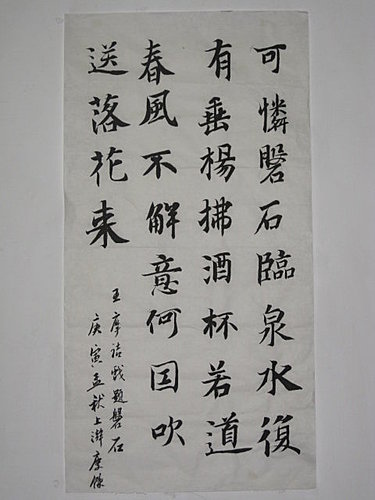 可憐磐石臨泉水復
有垂楊拂酒杯若道
春風不解意何因吹
送落花来
王摩诘戏題磐石
庚寅孟秋上澣